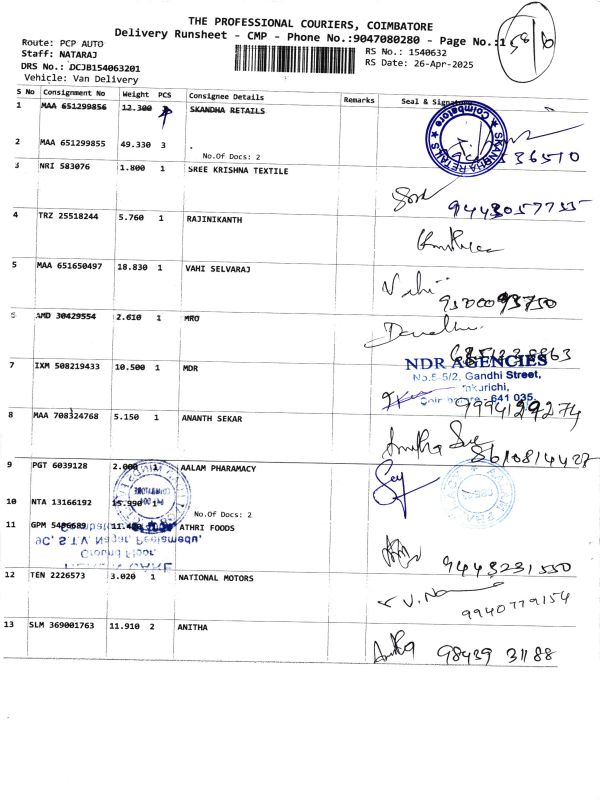 THE PROFESSIONAL COURIERS, COIMBATORE
Delivery Runsheet - CMP - Phone No.:9047080280 - Page No.:1
Route: PCP AUTO
Staff: NATARAJ
DRS No.: DCJB154063201
Vehicle: Van Delivery
RS No.: 1540632
RS Date: 26-Apr-2025
S No Consignment No Weight PCS Consignee Details Remarks Seal & Signature
1 MAA 651299856 12.300 SKANDHA RETAILS
2 MAA 651299855 49.330 3 .
No.Of Docs: 2
Coimbatore
SKANDHA RETAILS
36510
3 NRI 583076 1.800 1 SREE KRISHNA TEXTILE
9443057755
4 TRZ 25518244 5.760 1 RAJINIKANTH
5 MAA 651650497 18.830 1 VAHI SELVARAJ
Vahi
AMD 30429554 2.610 1 MRO
7 IXM 508219433 10.500 1 MDR
NDR AGENCIES
No.5-5/2, Gandhi Street,
641 035.
9994129274
8 MAA 708324768 5.150 1 ANANTH SEKAR
8610814427
9 PGT 6039128 1 AALAM PHARAMACY
10 NTA 13166192 15.990 1
No.Of Docs: 2
11 ATHRI FOODS
9C, S.T.V. Nagar, Peelamedu,
Ground Floor,
9443231550
12 TEN 2226573 3.020 1 NATIONAL MOTORS
9940779154
13 SLM 369001763 11.910 2 ANITHA
Anitha 98439 31188